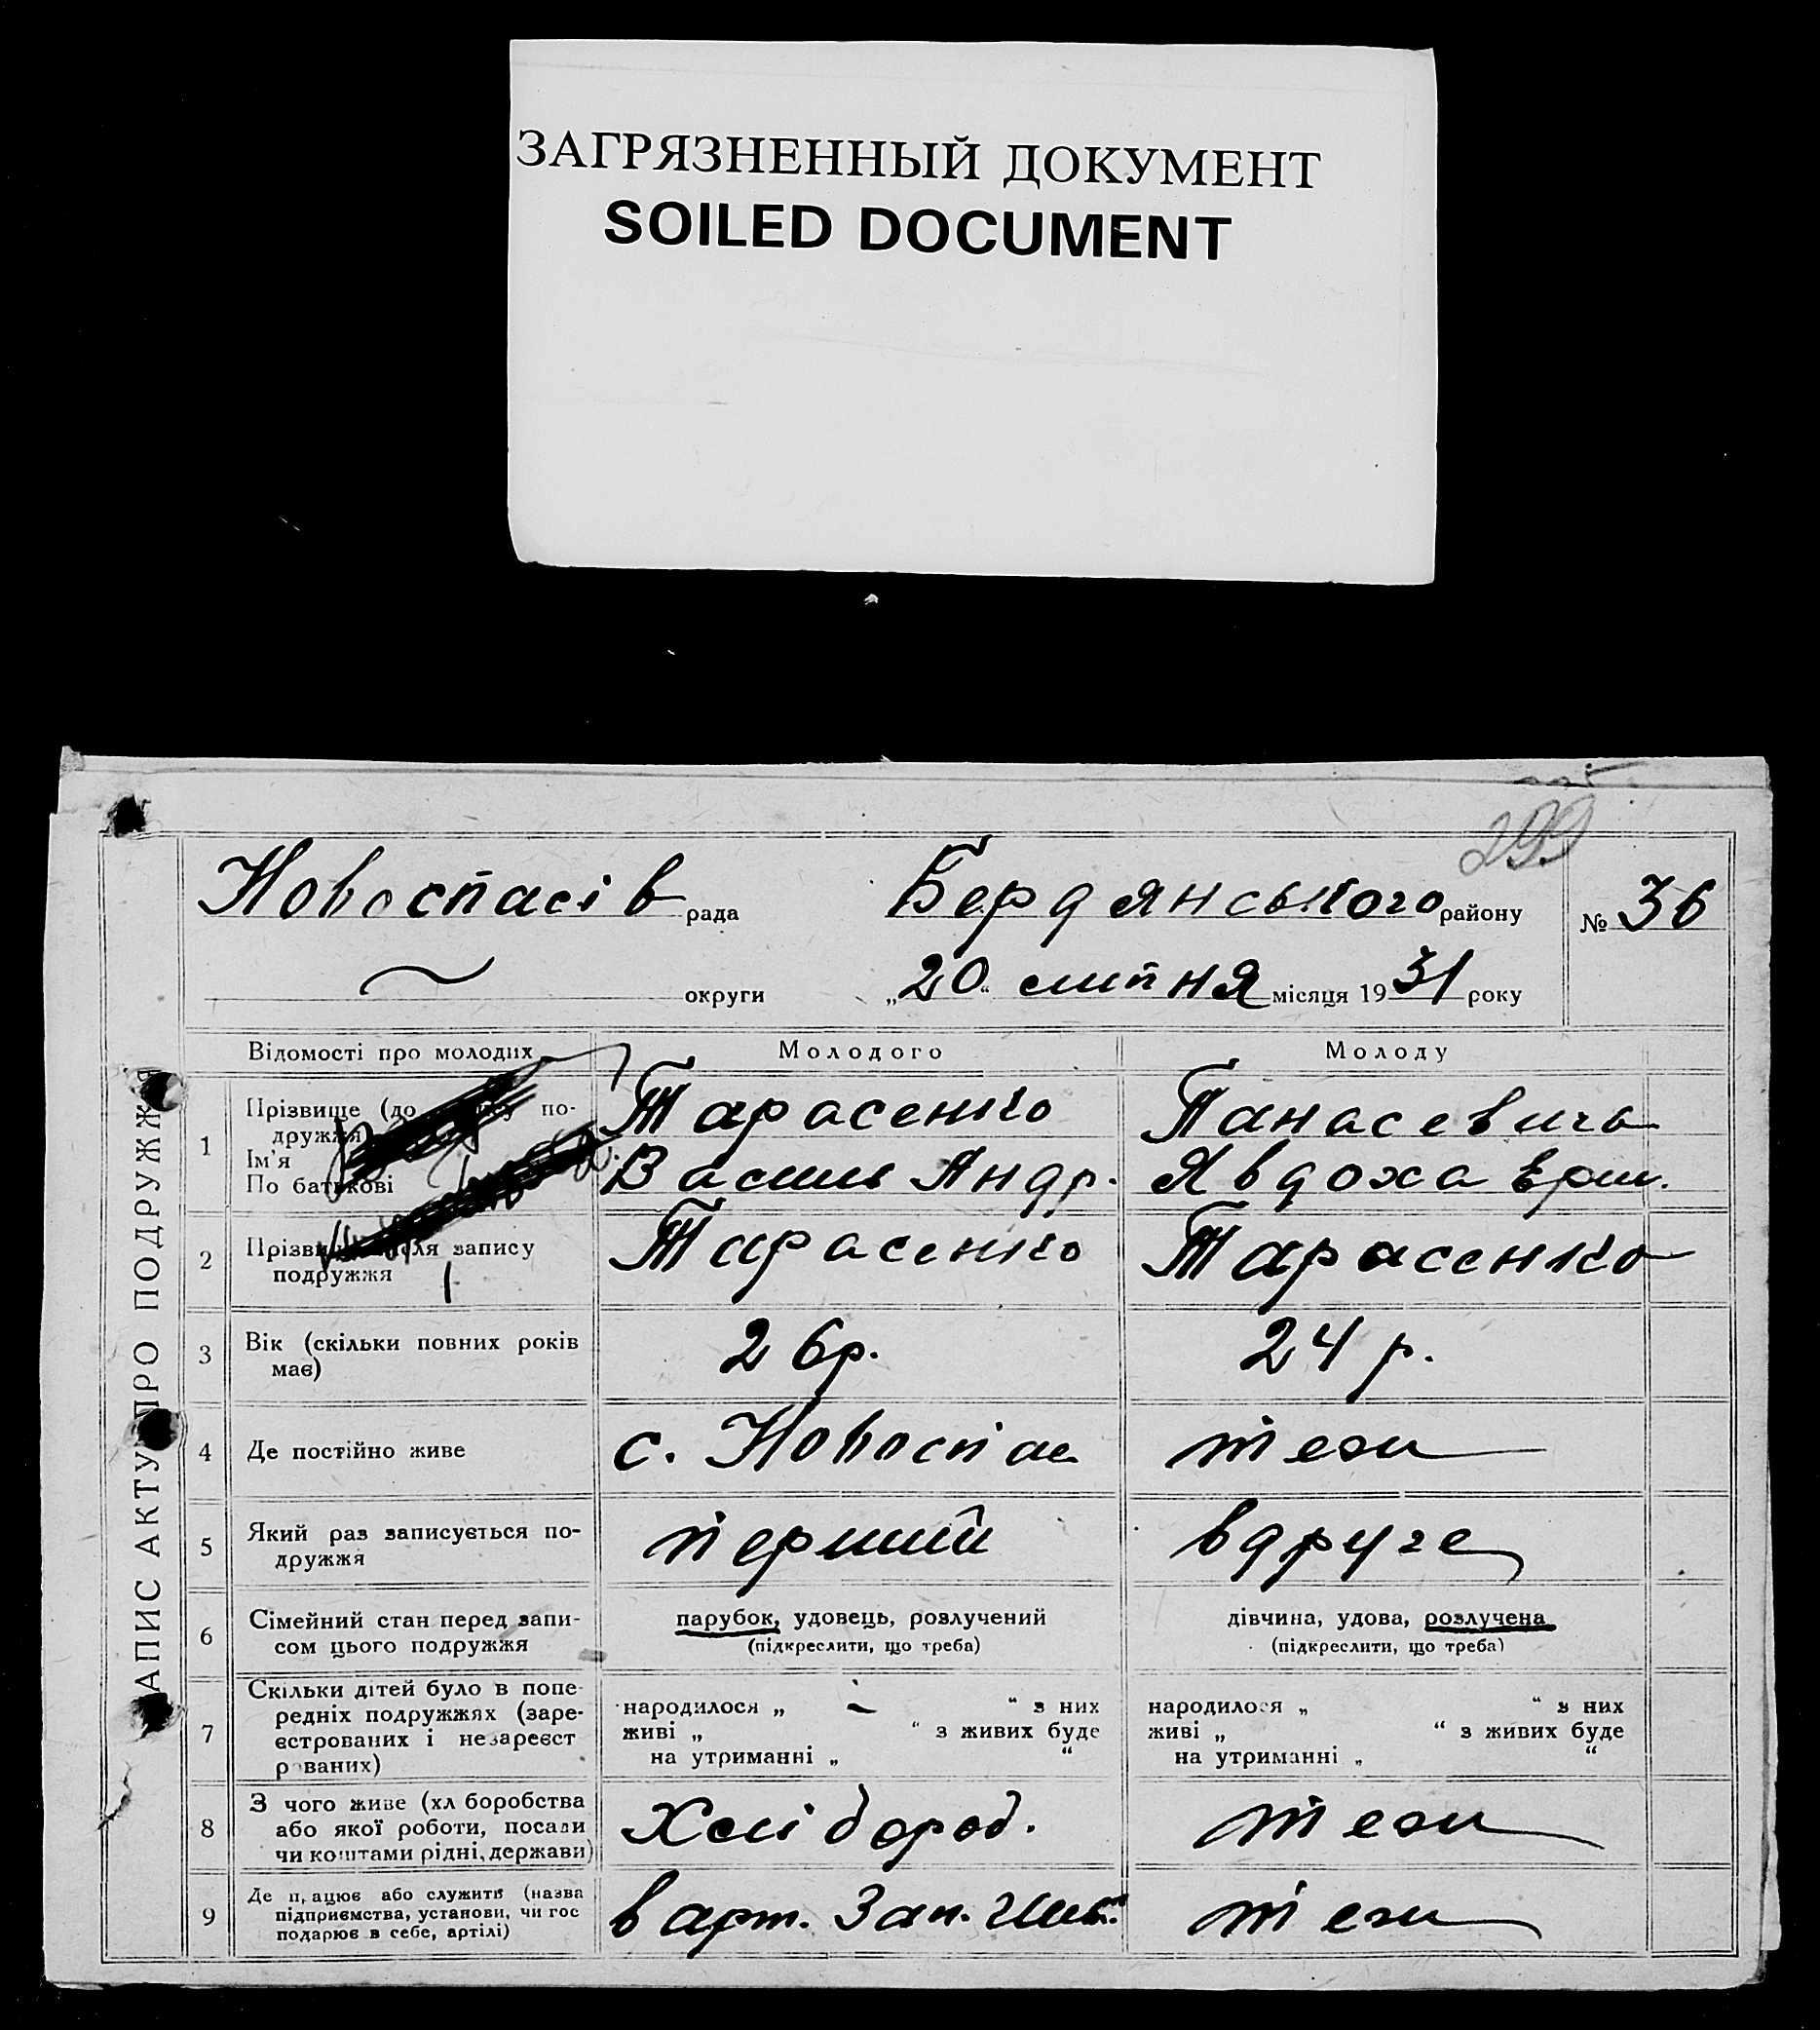 ЗАГРЯЗНЕННЫЙ ДОКУМЕНТ
SOILED DOCUMENT
299
Новоспасів рада Бердянського району № 36
округи „20“ липня місяця 1931 року
АПИС АКТУ ПРО ПОДРУЖЖЯ
Відомості про молодих Молодого Молоду
1 Прізвище (до по-
дружжя
Ім'я
По батькові
Тарасенко
Василь Андр.
Панасевичь
Явдоха
2 Прізв ля запису
подружжя
Тарасенко Тарасенко
3 Вік (скільки повних років
має)
26р. 24 р.
4 Де постійно живе с. Новоспас тежи
5 Який раз записується по-
дружжя
перший вдруге
6 Сімейний стан перед запи-
сом цього подружжя
парубок, удовець, розлучений
(підкреслити, що треба)
дівчина, удова, розлучена
(підкреслити, що треба)
7 Скільки дітей було в попе-
редніх подружжях (заре-
єстрованих і незареєст
рованих)
народилося „ - “ з них
живі „ “ з живих буде
на утриманні „ “
народилося „ “ з них
живі „ “ з живих буде
на утриманні „ “
8 З чого живе (хл боробства
або якої роботи, посади
чи коштами рідні, держави)
Хлібороб. тежи
9 Де працює або служить (назва
підприємства, установи, чи гос
подарює в себе, артілі)
в арт. тежи